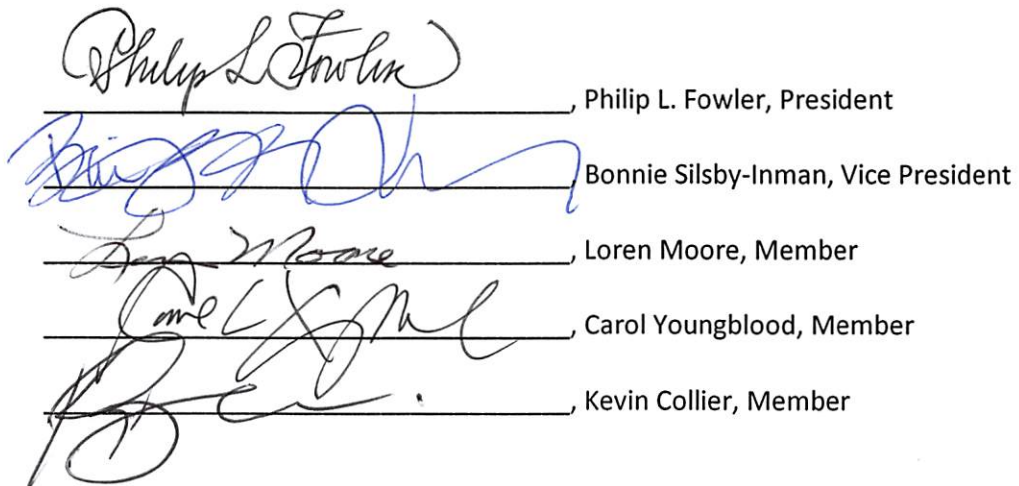 Philip L Fowler
, Philip L. Fowler, President
, Bonnie Silsby-Inman, Vice President
Moore
, Loren Moore, Member
Carol L
, Carol Youngblood, Member
, Kevin Collier, Member